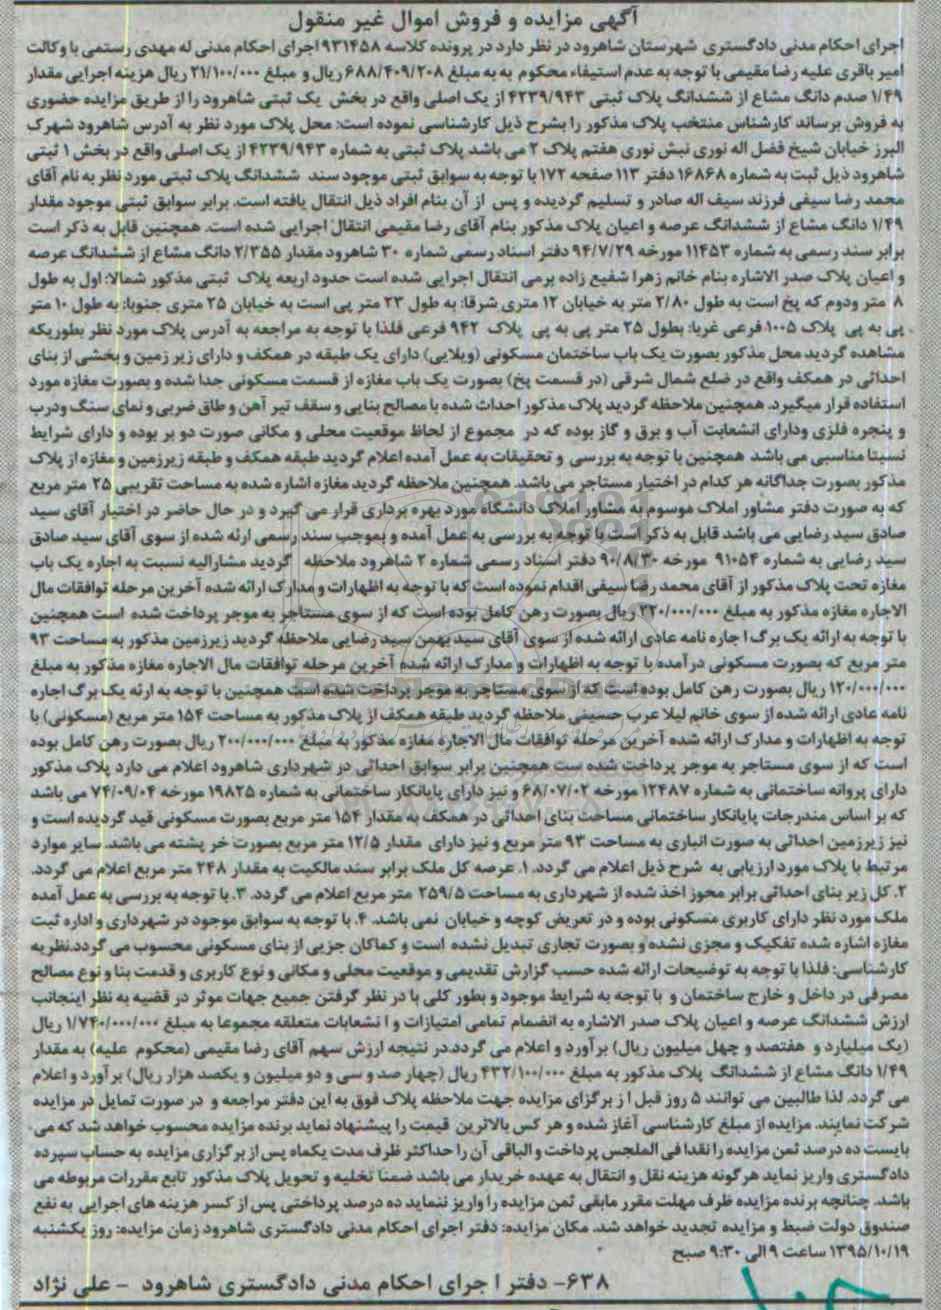 آگهی مزایده و فروش اموال غیر منقول
اجرای احکام مدنی دادگستری شهرستان شاهرود در نظر دارد در پرونده کلاسه ۹۳۱۴۵۸ اجرای احکام مدنی له مهدی رستمی با وکالت
امیر باقری علیه رضا مقیمی با توجه به عدم استیفاء محکوم به به مبلغ ۶۸۸/۴۰۹/۲۰۸ ریال و مبلغ ۲۱/۱۰۰/۰۰۰ ریال هزینه اجرایی مقدار
۱/۴۹ صدم دانگ مشاع از ششدانگ پلاک ثبتی ۴۲۳۹/۹۴۳ از یک اصلی واقع در بخش یک ثبتی شاهرود را از طریق مزایده حضوری
به فروش برساند کارشناس منتخب پلاک مذکور را بشرح ذیل کارشناسی نموده است: محل پلاک مورد نظر به آدرس شاهرود شهرک
البرز خیابان شیخ فضل اله نوری نبش نوری هفتم پلاک ۲ می باشد پلاک ثبتی به شماره ۴۲۳۹/۹۴۳ از یک اصلی واقع در بخش ۱ ثبتی
شاهرود ذیل ثبت به شماره ۱۶۸۶۸ دفتر ۱۱۳ صفحه ۱۷۲ با توجه به سوابق ثبتی موجود سند ششدانگ پلاک ثبتی مورد نظر به نام آقای
محمد رضا سیفی فرزند سیف اله صادر و تسلیم گردیده و پس از آن بنام افراد ذیل انتقال یافته است. برابر سوابق ثبتی موجود مقدار
۱/۴۹ دانگ مشاع از ششدانگ عرصه و اعیان پلاک مذکور بنام آقای رضا مقیمی انتقال اجرایی شده است. همچنین قابل به ذکر است
برابر سند رسمی به شماره ۱۱۴۵۳ مورخه ۹۴/۷/۲۹ دفتر اسناد رسمی شماره ۳۰ شاهرود مقدار ۲/۳۵۵ دانگ مشاع از ششدانگ عرصه
و اعیان پلاک صدر الاشاره بنام خانم زهرا شفیع زاده برمی انتقال اجرایی شده است حدود اربعه پلاک ثبتی مذکور شمالا: اول به طول
۸ متر ودوم که پخ است به طول ۲/۸۰ متر به خیابان ۱۲ متری شرقا: به طول ۲۳ متر پی است به خیابان ۲۵ متری جنوبا: به طول ۱۰ متر
پی به پی پلاک ۱۰۰۵ فرعی غربا: بطول ۲۵ متر پی به پی پلاک ۹۴۲ فرعی فلذا با توجه به مراجعه به آدرس پلاک مورد نظر بطوریکه
مشاهده گردید محل مذکور بصورت یک باب ساختمان مسکونی (ویلایی) دارای یک طبقه در همکف و دارای زیر زمین و بخشی از بنای
احداثی در همکف واقع در ضلع شمال شرقی (در قسمت پخ) بصورت یک باب مغازه از قسمت مسکونی جدا شده و بصورت مغازه مورد
استفاده قرار میگیرد. همچنین ملاحظه گردید پلاک مذکور احداث شده با مصالح بنایی و سقف تیر آهن و طاق ضربی و نمای سنگ ودرب
و پنجره فلزی ودارای انشعابت آب و برق و گاز بوده که در مجموع از لحاظ موقعیت محلی و مکانی صورت دو بر بوده و دارای شرایط
نسبتا مناسبی می باشد همچنین با توجه به بررسی و تحقیقات به عمل آمده اعلام گردید طبقه همکف و طبقه زیرزمین و مغازه از پلاک
مذکور بصورت جداگانه هر کدام در اختیار مستاجر می باشد. همچنین ملاحظه گردید مغازه اشاره شده به مساحت تقریبی ۲۵ متر مربع
که به صورت دفتر مشاور املاک موسوم به مشاور املاک دانشگاه مورد بهره برداری قرار می گیرد و در حال حاضر در اختیار آقای سید
صادق سید رضایی می باشد قابل به ذکر است با توجه به بررسی به عمل آمده و بموجب سند رسمی ارئه شده از سوی آقای سید صادق
سید رضایی به شماره ۹۱۰۵۴ مورخه ۹۰/۸/۳۰ دفتر اسناد رسمی شماره ۲ شاهرود ملاحظه گردید مشارالیه نسبت به اجاره یک باب
مغازه تحت پلاک مذکور از آقای محمد رضا سیفی اقدام نموده است که با توجه به اظهارات و مدارک ارائه شده آخرین مرحله توافقات مال
الاجاره مغازه مذکور به مبلغ ۲۲۰/۰۰۰/۰۰۰ ریال بصورت رهن کامل بوده است که از سوی مستاجر به موجر پرداخت شده است همچنین
با توجه به ارائه یک برگ ا جاره نامه عادی ارائه شده از سوی آقای سید بهمن سید رضایی ملاحظه گردید زیرزمین مذکور به مساحت ۹۳
متر مربع که بصورت مسکونی درآمده با توجه به اظهارات و مدارک ارائه شده آخرین مرحله توافقات مال الاجاره مغازه مذکور به مبلغ
۱۲۰/۰۰۰/۰۰۰ ریال بصورت رهن کامل بوده است که از سوی مستاجر به موجر پرداخت شده است همچنین با توجه به ارئه یک برگ اجاره
نامه عادی ارائه شده از سوی خانم لیلا عرب حسینی ملاحظه گردید طبقه همکف از پلاک مذکور به مساحت ۱۵۴ متر مربع (مسکونی) با
توجه به اظهارات و مدارک ارائه شده آخرین مرحله توافقات مال الاجاره مغازه مذکور به مبلغ ۲۰۰/۰۰۰/۰۰۰ ریال بصورت رهن کامل بوده
است که از سوی مستاجر به موجر پرداخت شده ست همچنین برابر سوابق احداثی در شهرداری شاهرود اعلام می دارد پلاک مذکور
دارای پروانه ساختمانی به شماره ۱۲۴۸۷ مورخه ۶۸/۰۷/۰۲ و نیز دارای پایانکار ساختمانی به شماره ۱۹۸۲۵ مورخه ۷۴/۰۹/۰۴ می باشد
که بر اساس مندرجات پایانکار ساختمانی مساحت بنای احداثی در همکف به مقدار ۱۵۴ متر مربع بصورت مسکونی قید گردیده است و
نیز زیرزمین احداثی به صورت انباری به مساحت ۹۳ متر مربع و نیز دارای مقدار ۱۲/۵ متر مربع بصورت خر پشته می باشد. سایر موارد
مرتبط با پلاک مورد ارزیابی به شرح ذیل اعلام می گردد. ۱. عرصه کل ملک برابر سند مالکیت به مقدار ۲۴۸ متر مربع اعلام می گردد.
۲. کل زیر بنای احداثی برابر مجوز اخذ شده از شهرداری به مساحت ۲۵۹/۵ متر مربع اعلام می گردد. ۳. با توجه به بررسی به عمل آمده
ملک مورد نظر دارای کاربری مسکونی بوده و در تعریض کوچه و خیابان نمی باشد. ۴. با توجه به سوابق موجود در شهرداری و اداره ثبت
مغازه اشاره شده تفکیک و مجزی نشده و بصورت تجاری تبدیل نشده است و کماکان جزیی از بنای مسکونی محسوب می گردد.نظریه
کارشناسی: فلذا با توجه به توضیحات ارائه شده حسب گزارش تقدیمی و موقعیت محلی و مکانی و نوع کاربری و قدمت بنا و نوع مصالح
مصرفی در داخل و خارج ساختمان و با توجه به شرایط موجود و بطور کلی با در نظر گرفتن جمیع جهات موثر در قضیه به نظر اینجانب
ارزش ششدانگ عرصه و اعیان پلاک صدر الاشاره به انضمام تمامی امتیازات و ا نشعابات متعلقه مجموعا به مبلغ ۱/۷۴۰/۰۰۰/۰۰۰ ریال
(یک میلیارد و هفتصد و چهل میلیون ریال) برآورد و اعلام می گردد.در نتیجه ارزش سهم آقای رضا مقیمی (محکوم علیه) به مقدار
۱/۴۹ دانگ مشاع از ششدانگ پلاک مذکور به مبلغ ۴۳۲/۱۰۰/۰۰۰ ریال (چهار صد و سی و دو میلیون و یکصد هزار ریال) برآورد و اعلام
می گردد. لذا طالبین می توانند ۵ روز قبل ا ز برگزای مزایده جهت ملاحظه پلاک فوق به این دفتر مراجعه و در صورت تمایل در مزایده
شرکت نمایند. مزایده از مبلغ کارشناسی آغاز شده و هر کس بالاترین قیمت را پیشنهاد نماید برنده مزایده محسوب خواهد شد که می
بایست ده درصد ثمن مزایده را نقدا فی الملجس پرداخت و الباقی آن را حداکثر ظرف مدت یکماه پس از برگزاری مزایده به حساب سپرده
دادگستری واریز نماید هر گونه هزینه نقل و انتقال به عهده خریدار می باشد ضمنا تخلیه و تحویل پلاک مذکور تابع مقررات مربوطه می
باشد. چنانچه برنده مزایده ظرف مهلت مقرر مابقی ثمن مزایده را واریز ننماید ده درصد پرداختی پس از کسر هزینه های اجرایی به نفع
صندوق دولت ضبط و مزایده تجدید خواهد شد. مکان مزایده: دفتر اجرای احکام مدنی دادگستری شاهرود زمان مزایده: روز یکشنبه
۱۳۹۵/۱۰/۱۹ ساعت ۹ الی ۹:۳۰ صبح
۶۳۸- دفتر ا جرای احکام مدنی دادگستری شاهرود - علی نژاد